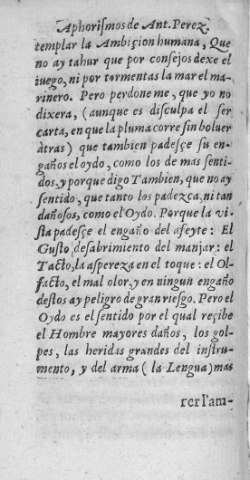 Aphorismos de Ant. Perez
templar la Ambiçion humana, Que
no ay tahur que por consejos dexe el
iuego, ni por tormentas la mar el ma-
rinero. Pero perdone me, que yo no
dixera, (aunque es disculpa el ser
carta, en que la pluma corre sin boluer
àtras) que tambien padesçe su en-
gaños el oydo, como los de mas senti-
dos, y porque digo Tambien, que no ay
sentido, que tanto los padezca, ni tan
dañosos, como el Oydo. Porque la vi-
sta padesçe el engaño del afeyte: El
Gusto desabrimiento del manjar: el
Tacto, la aspereza en el toque: el Ol-
facto, el mal olor, y en ningun engaño
destos ay peligro de gran riesgo. Pero el
Oydo es el sentido por el qual reçibe
el Hombre mayores daños, los gol-
pes, las heridas grandes del instru-
mento, y del arma (la Lengua) mas